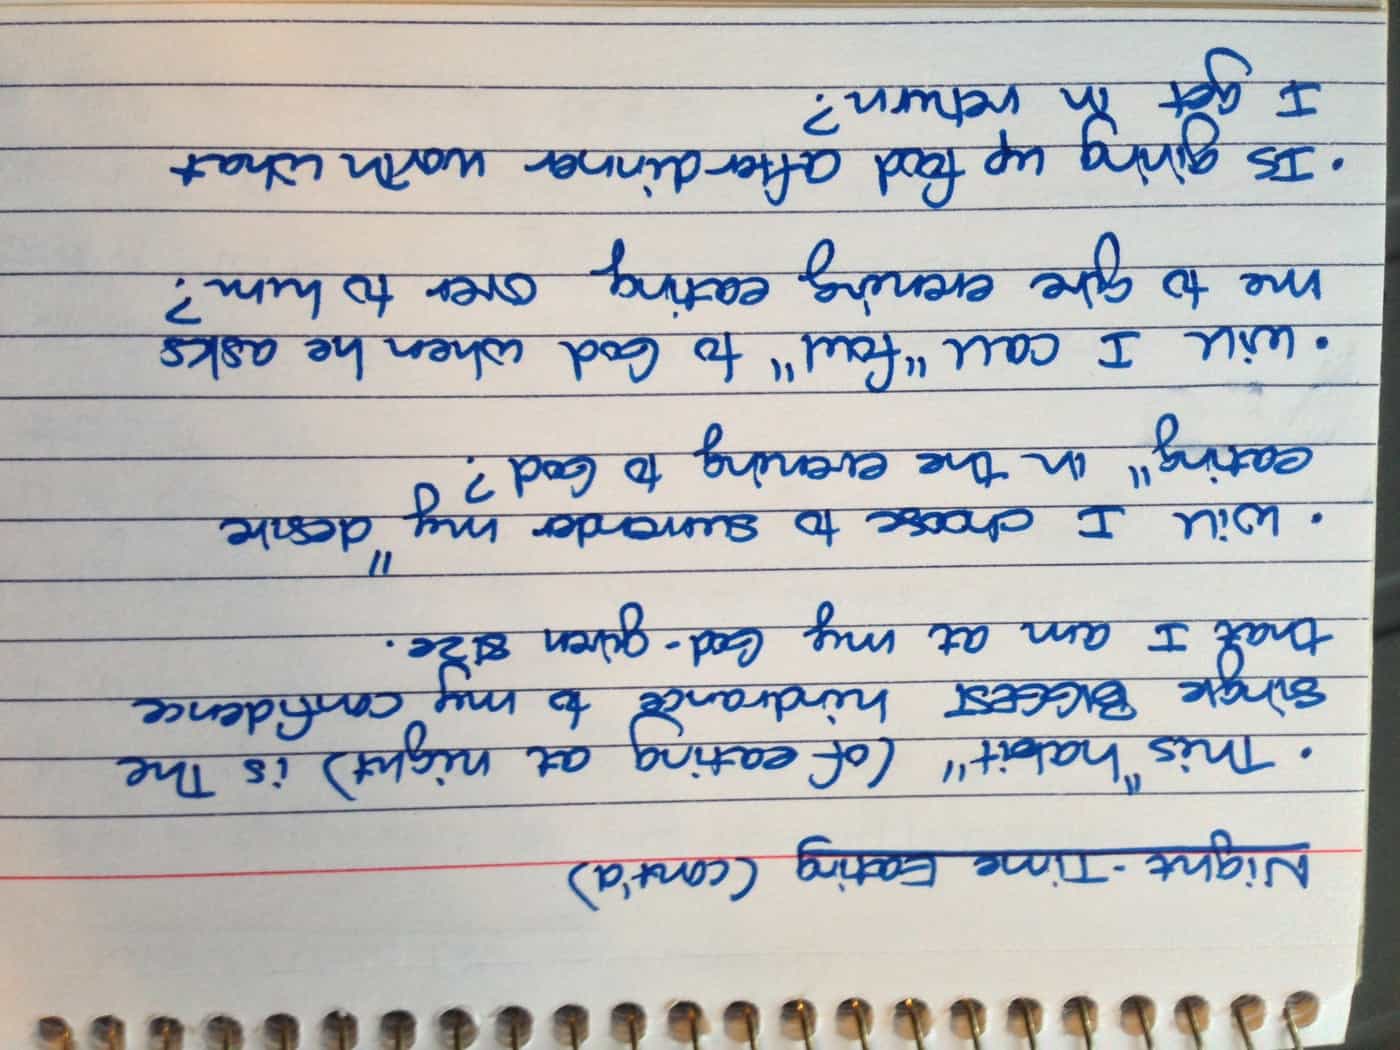 Night-Time Eating (cont'd)
• This "habit" (of eating at night) is The
single BIGGEST hindrance to my confidence
that I am at my God-given size.
• Will I choose to surrender my "desire
eating" in the evening to God?
• Will I call "foul" to God when he asks
me to give evening eating over to him?
• Is giving up food after dinner worth what
I get in return?